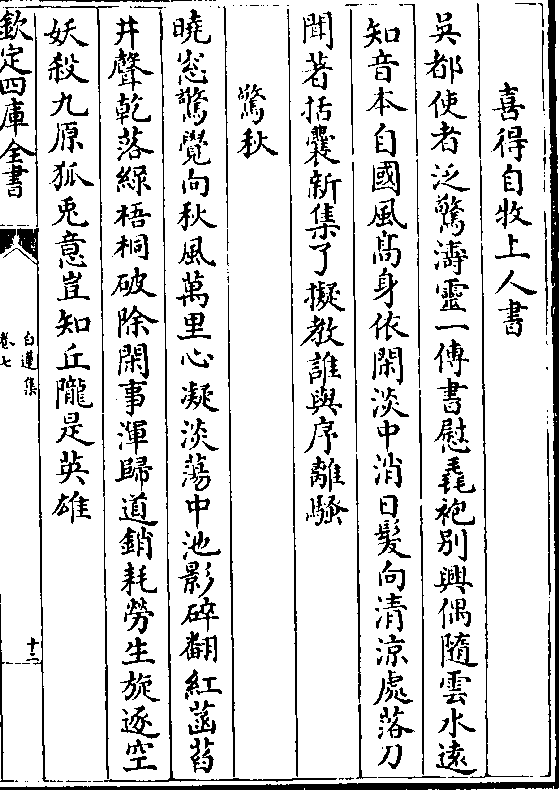 喜得自牧上人書
吳都使者泛驚濤靈一傳書慰毳袍別興偶隨雲水遠
知音本自國風高身依閑淡中消日髮向清涼處落刀
聞著括囊新集了擬教誰與序離騷
驚秋
曉窓驚覺向秋風萬里心凝淡蕩中池影碎翻紅菡萏
井聲乾落緑梧桐破除閑事渾歸道銷耗勞生旋逐空
妖殺九原狐兎意豈知丘隴是英雄
欽定四庫全書
白蓮集
卷七
十二